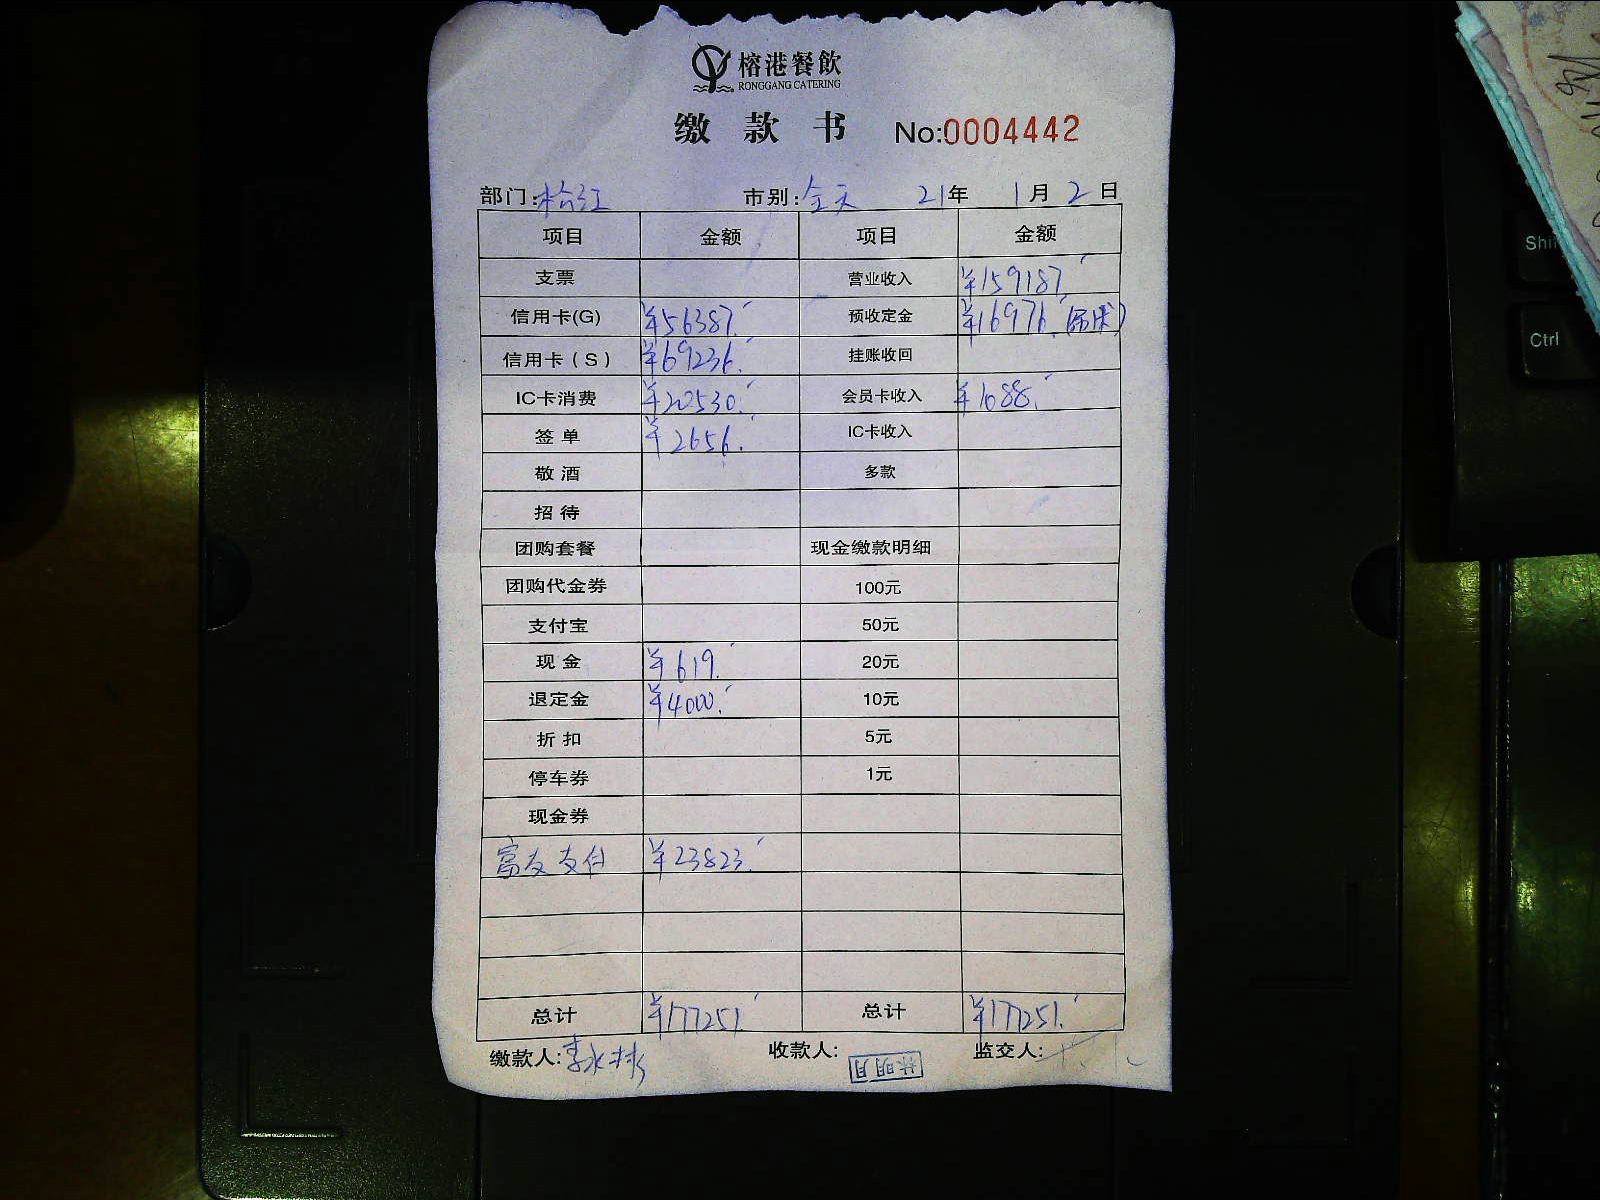 榕港餐飲
RONGGANG CATERING
缴款书 No:0004442
部门: 市别:全天 21年 1月 2日
项目 金额 项目 金额
支票 营业收入 ¥159187.
信用卡(G) ¥56387. 预收定金 ¥16976.
信用卡(S) ¥69236. 挂账收回
IC卡消费 ¥20530. 会员卡收入 ¥1088.
签单 ¥2656. IC卡收入
敬酒 多款
招待
团购套餐 现金缴款明细
团购代金券 100元
支付宝 50元
现金 ¥619. 20元
退定金 ¥4000. 10元
折扣 5元
停车券 1元
现金券
富友支付 ¥23823.
总计 ¥177251. 总计 ¥177251.
缴款人: 收款人: 林明月 监交人:
Shif
Ctrl